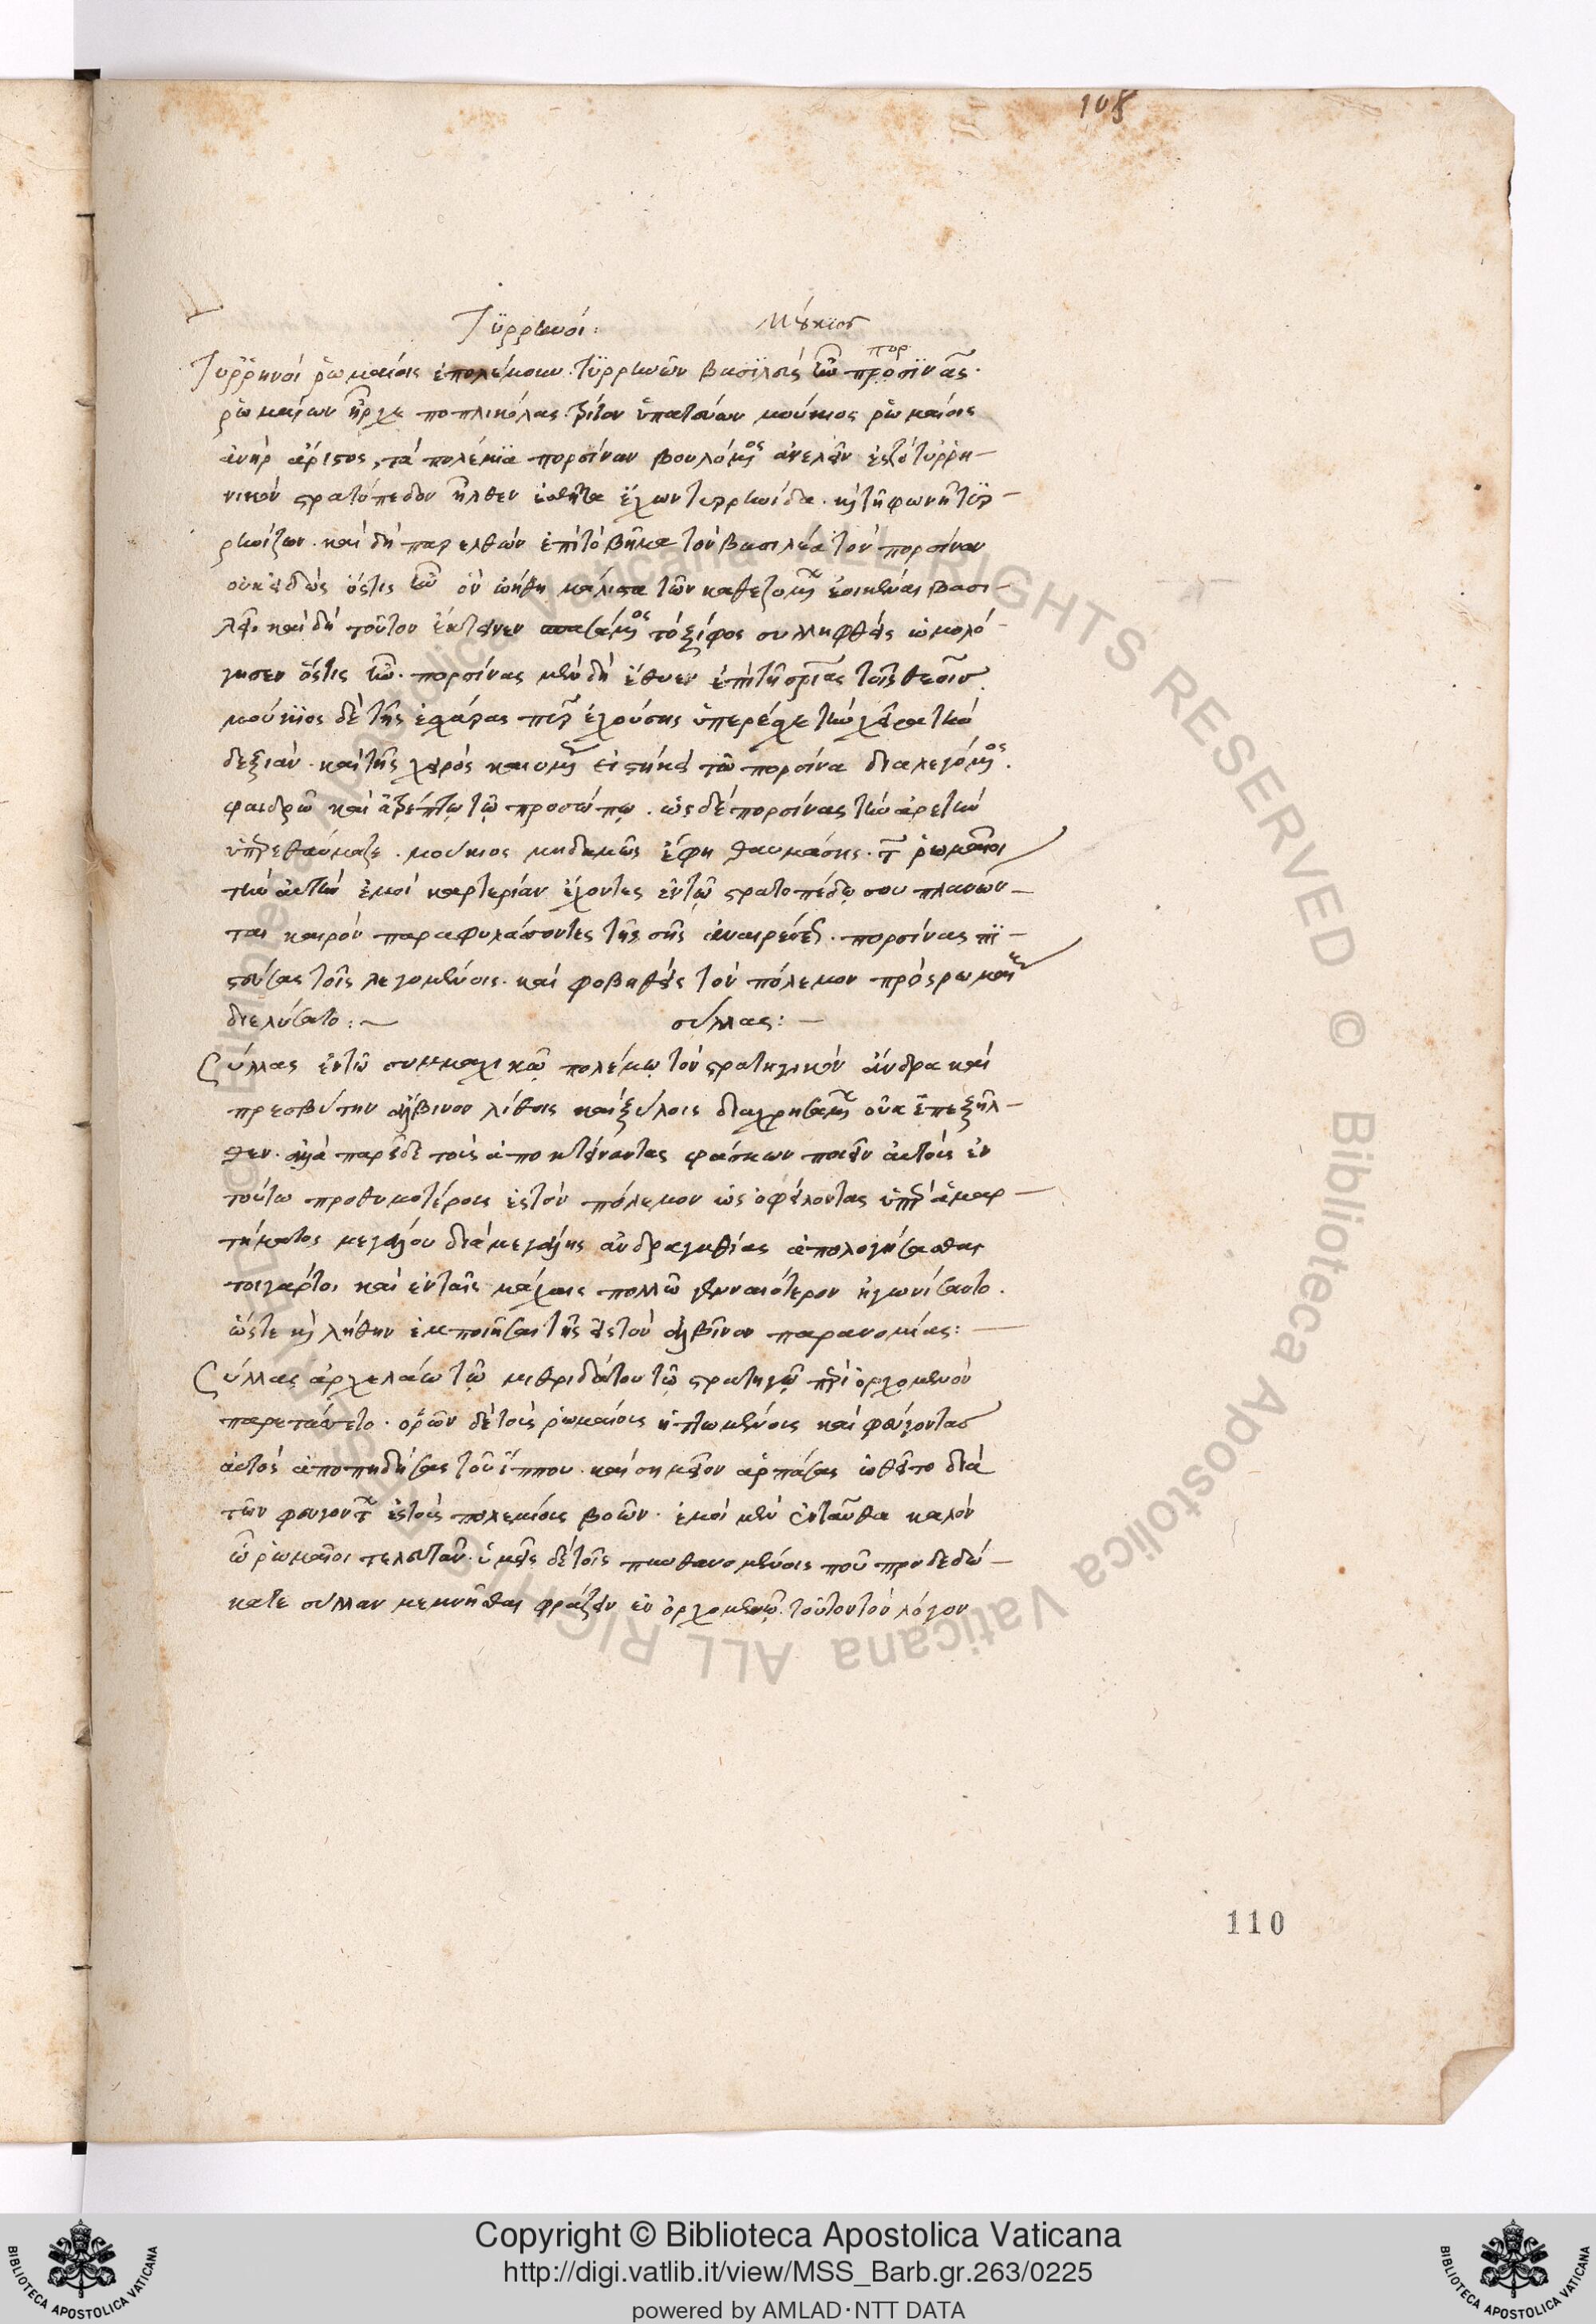 108
Τυρρηνοί: Μούκιος
πορ
Τυρρηνοί ῥωμαίοις ἐπολέμουν. τυρρηνῶν βασιλεὺς ἦν προσίνας.
ῥωμαίων ἦρχε ποπλικόλας τρίτον ὑπατεύων μούκιος ῥωμαίοις
ἀνὴρ ἄριστος τὰ πολέμια πορσίναν βουλόμενος ἀνελεῖν ἐς τὸ τυρρη-
νικὸν στρατόπεδον ἦλθεν ἐσθῆτα ἔχων τυρρηνίδα. καὶ τῇ φωνῇ τυρ-
ρηνίζων. καὶ δὴ παρελθὼν ἐπὶ τὸ βῆμα τὸν βασιλέα τὸν πορσίναν
οὐκ εἰδὼς ὅστις ἦν ὃν ᾠήθη μάλιστα τῶν καθεζομένων ἐοικέναι βασι-
λεῖ. καὶ δὴ τοῦτον ἔκτεινεν σπασάμενος τὸ ξίφος συλληφθεὶς ὡμολό-
γησεν ὅστις ἦν. πορσίνας μὲν δὴ ἔθυεν ἐπὶ τῆς σωτηρίας τοῖς θεοῖς.
μούκιος δὲ τῆς ἐσχάρας πῦρ ἐχούσης ὑπερέσχε τὴν χεῖρα τὴν
δεξιάν. καὶ τῆς χειρὸς καιομένης εἱστήκει τῷ πορσίνα διαλεγόμενος.
φαιδρῷ καὶ ἀτρέπτῳ τῷ προσώπῳ. ὡς δὲ πορσίνας τὴν ἀρετὴν
ὑπερεθαύμαζε. μούκιος μηδαμῶς ἔφη θαυμάσῃς. τ ῥωμαῖοι
τὴν αὐτὴν ἐμοὶ καρτερίαν ἔχοντες ἐν τῷ στρατοπέδῳ σου πλανῶν-
ται καιρὸν παραφυλάσσοντες τῆς σῆς ἀναιρέσεως. πορσίνας πι-
στεύσας τοῖς λεγομένοις. καὶ φοβηθεὶς τὸν πόλεμον πρὸς ῥωμαίους
διελύσατο: σύλλας:
Σύλλας ἐν τῷ συμμαχικῷ πολέμῳ τὸν στρατηγικὸν ἄνδρα καὶ
πρεσβύτην ἀλβινον λίθοις καὶ ξύλοις διαχρησαμένων οὐκ ἐπεξῆλ-
θεν. ἀλλὰ παρεῖδε τοὺς ἀποκτείναντας φάσκων ποιεῖν αὐτοὺς ἐν
τούτω προθυμοτέρους ἐς τὸν πόλεμον ὡς ὀφείλοντας ὑπὲρ ἁμαρ-
τήματος μεγάλου διὰ μεγάλης ἀνδραγαθίας ἀπολογήσασθαι
τοιγάρτοι καὶ ἐν ταῖς μάχαις πολλῷ γενναιότερον ἠγωνίσαντο.
ὥστε καὶ λήθην ἐμποιῆσαι τῆς εἰς τὸν ἀλβῖνον παρανομίας:
Σύλλας ἀρχελάῳ τῷ μιθριδάτου τῷ στρατηγῷ περὶ ὀρχομενὸν
παρετάσσετο. ὁρῶν δὲ τοὺς ῥωμαίους ἡττωμένους καὶ φεύγοντας
αὐτὸς ἀποπηδήσας τοῦ ἵππου. καὶ σημεῖον ἁρπάσας ὠθεῖτο διὰ
τῶν φευγόντων ἐς τοὺς πολεμίους βοῶν. ἐμοὶ μὲν ἐνταῦθα καλὸν
ὦ ῥωμαῖοι τελευτᾶν. ὑμεῖς δὲ τοῖς πυνθανομένοις ποῦ προδεδώ-
κατε σύλλαν μεμνῆσθαι φράζειν ἐν ὀρχομενῷ. τοῦτον τὸν λόγον
110
Copyright © Biblioteca Apostolica Vaticana
http://digi.vatlib.it/view/MSS_Barb.gr.263/0225
powered by AMLAD·NTT DATA